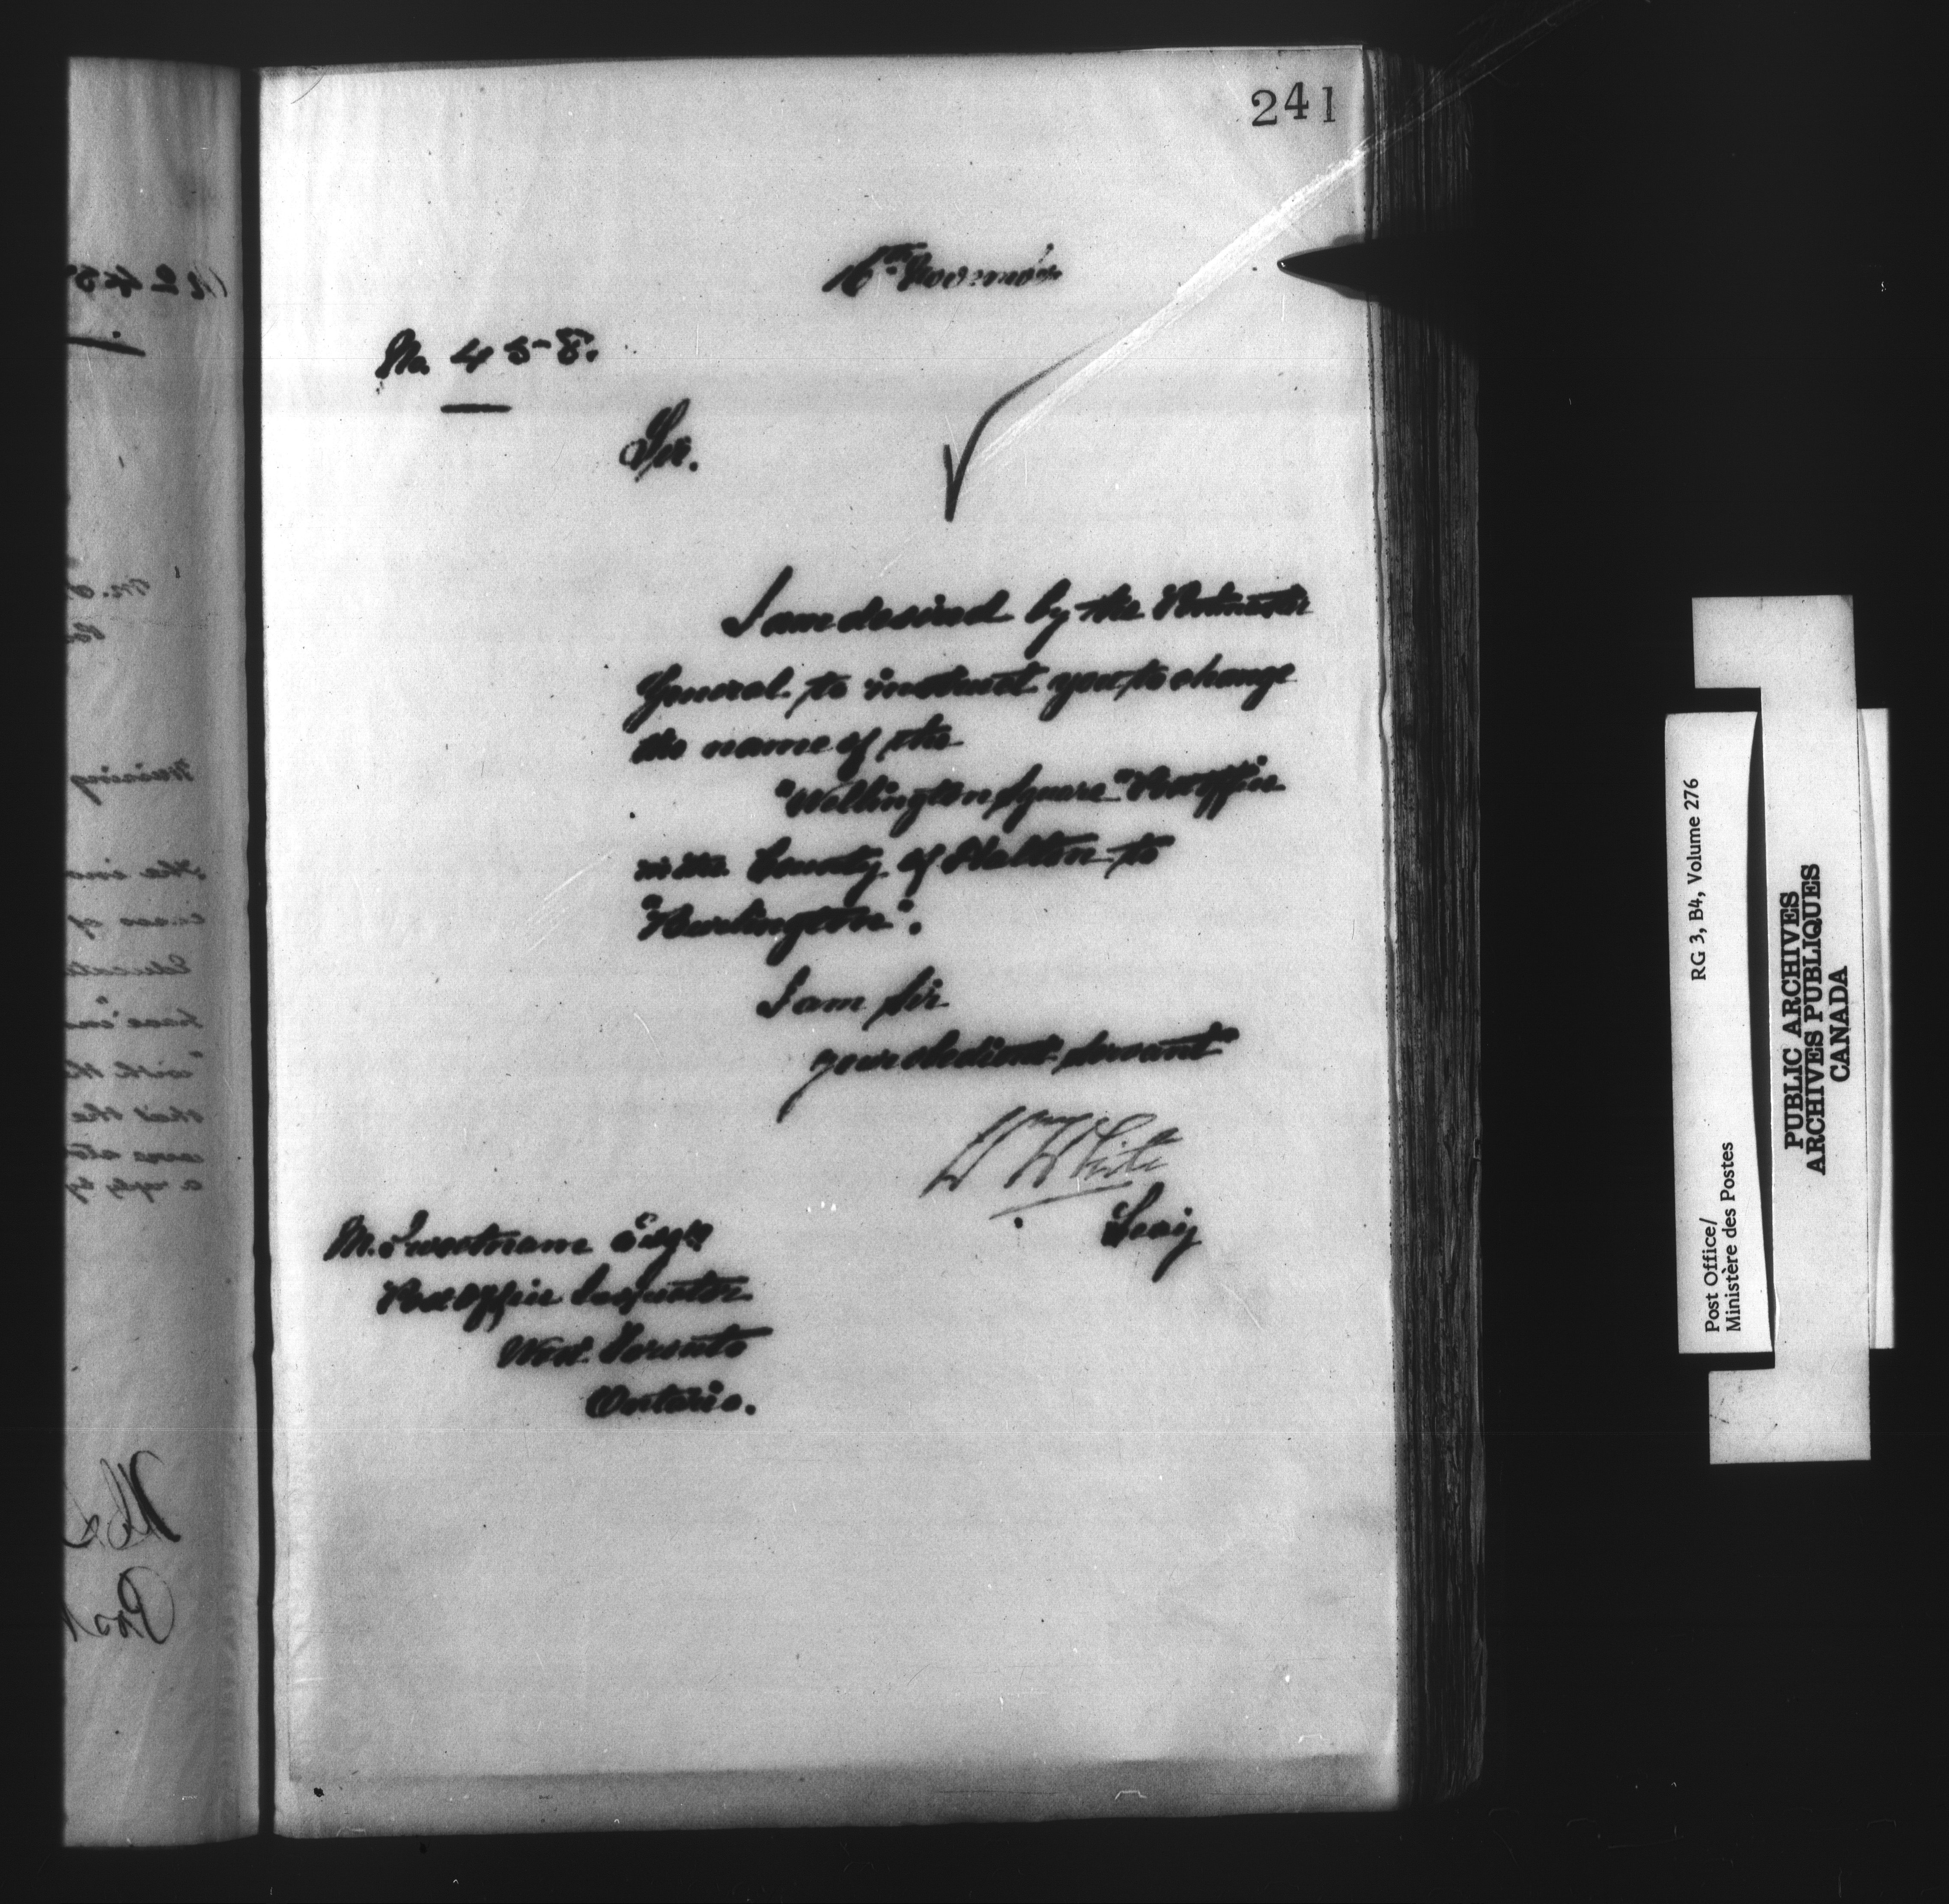 241
16th November
No. 458.
Sir.
I am desired by the Postmaster
General to instruct you to change
the name of the
"Wellington Square" Post Office
in the County of Halton to
"Burlington".
I am Sir
your obedient servant
W White
Secy
M. Sweetnam Esqre
Post Office Inspector
Toronto
Ontario.
Post Office/
Ministère des Postes
RG 3, B4, Volume 276
PUBLIC ARCHIVES
ARCHIVES PUBLIQUES
CANADA